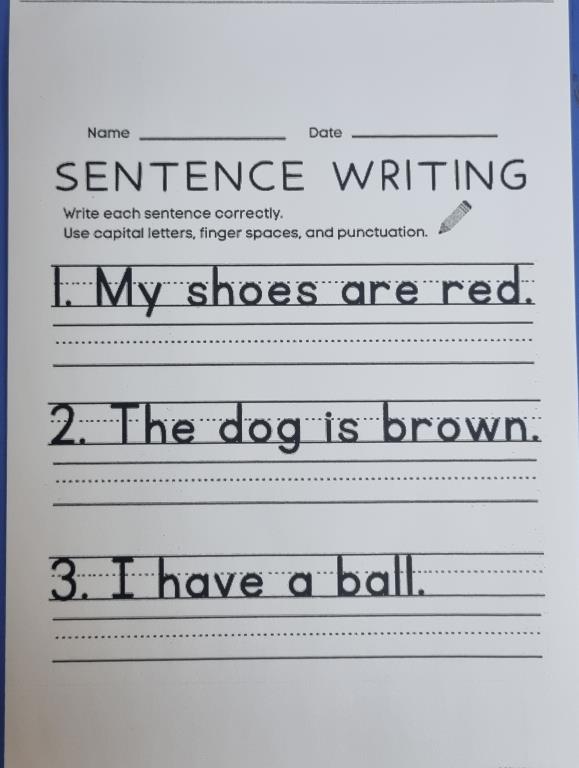 Name Date
SENTENCE WRITING
Write each sentence correctly.
Use capital letters, finger spaces, and punctuation.
1. My shoes are red.
2. The dog is brown.
3. I have a ball.